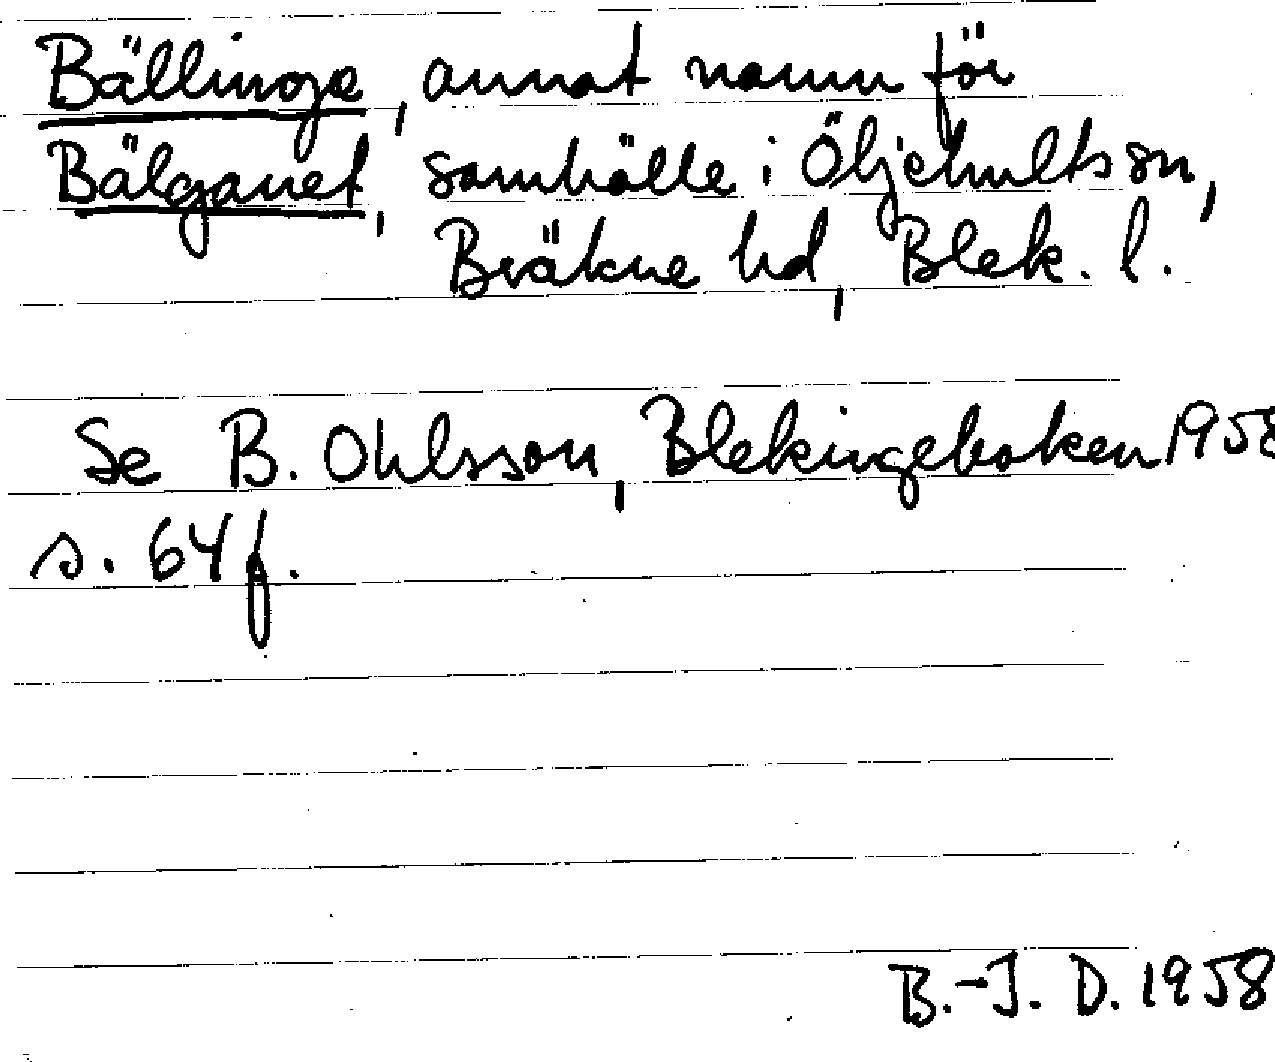 Bällinge, annat namn för
Bälganet, samhälle i Öljehults sn,
Bräkne hd, Blek. l.
Se B. Ohlsson, Blekingeboken 1958
s. 64 f.
B.-J. D. 1958